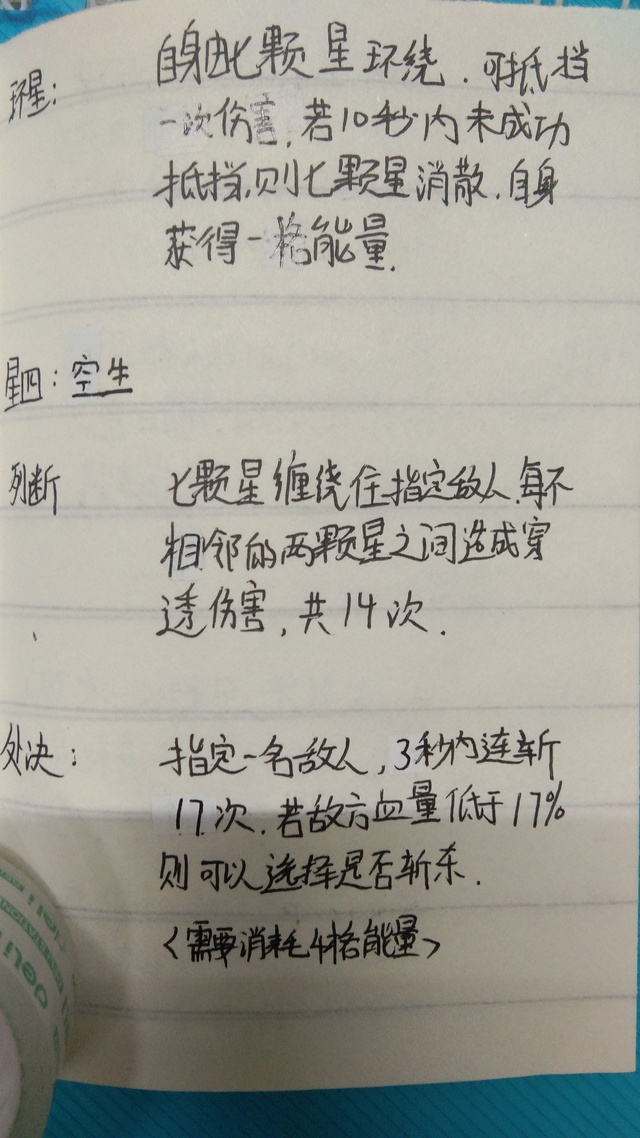 环星: 自身由七颗星环绕.可抵挡
一次伤害,若10秒内未成功
抵挡,则七颗星消散.自身
获得一格能量.
星四:空生
列断 七颗星缠绕住指定敌人.每不
相邻的两颗星之间造成穿
透伤害,共14次.
处决: 指定一名敌人,3秒内连斩
17次.若敌方血量低于17%
则可以选择是否斩杀.
<需要消耗4格能量>
deli